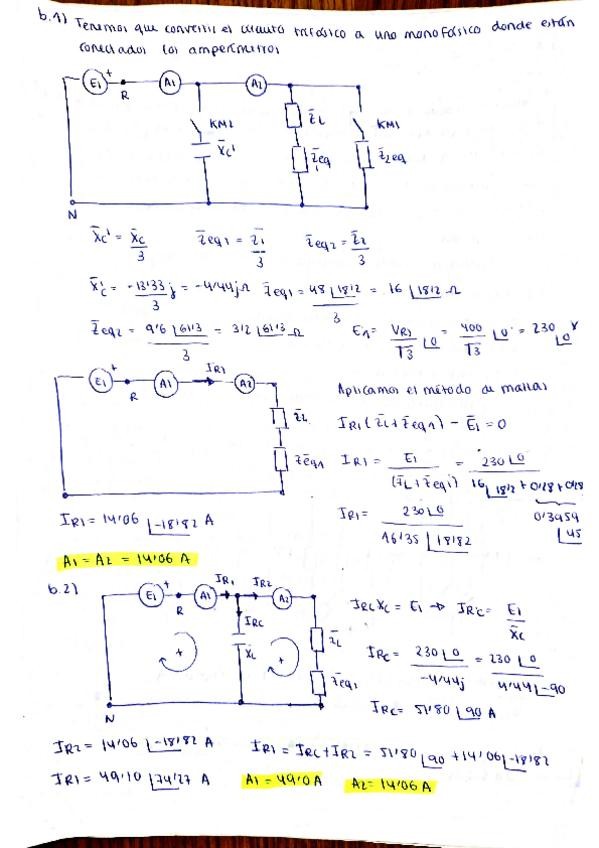 b.1) Tenemos que convertir el circuito trifásico a uno monofásico donde están
conectados los amperímetros
E1 + R A1 A2
KM2 X̄c' Z̄L Z̄eq1 KM1 Z̄2eq
N
X̄c' = X̄c/3 Z̄eq1 = Z̄1/3 Z̄eq2 = Z̄2/3
X̄c' = -13'33j/3 = -4'44j Ω Z̄eq1 = 48∠18'2/3 = 16∠18'2 Ω
Z̄eq2 = 9'6∠61'3/3 = 3'2∠61'3 Ω E1 = VR1/√3 ∠0 = 400/√3 ∠0° = 230∠0 V
E1 + R A1 IR1 A2
Z̄L
Z̄eq1
Aplicamos el método de mallas
IR1(Z̄L+Z̄eq1) - Ē1 = 0
IR1 = E1/(Z̄L+Z̄eq1) = 230∠0/16∠18'2 + 0'28 + 0'28
0'3959∠45
IR1 = 230∠0/16'35∠18'82
IR1 = 14'06∠-18'82 A
A1 = A2 = 14'06 A
b.2)
E1 + R A1 IR1 IR2 A2
IRC
X̄c Z̄L
Z̄eq1
N
IRC X̄c = E1 → IRC = E1/X̄c
IRC = 230∠0/-4'44j = 230∠0/4'44∠-90
IRC = 51'80∠90 A
IR2 = 14'06∠-18'82 A IR1 = IRC + IR2 = 51'80∠90 + 14'06∠-18'82
IR1 = 49'10∠74'27 A A1 = 49'0 A A2 = 14'06 A